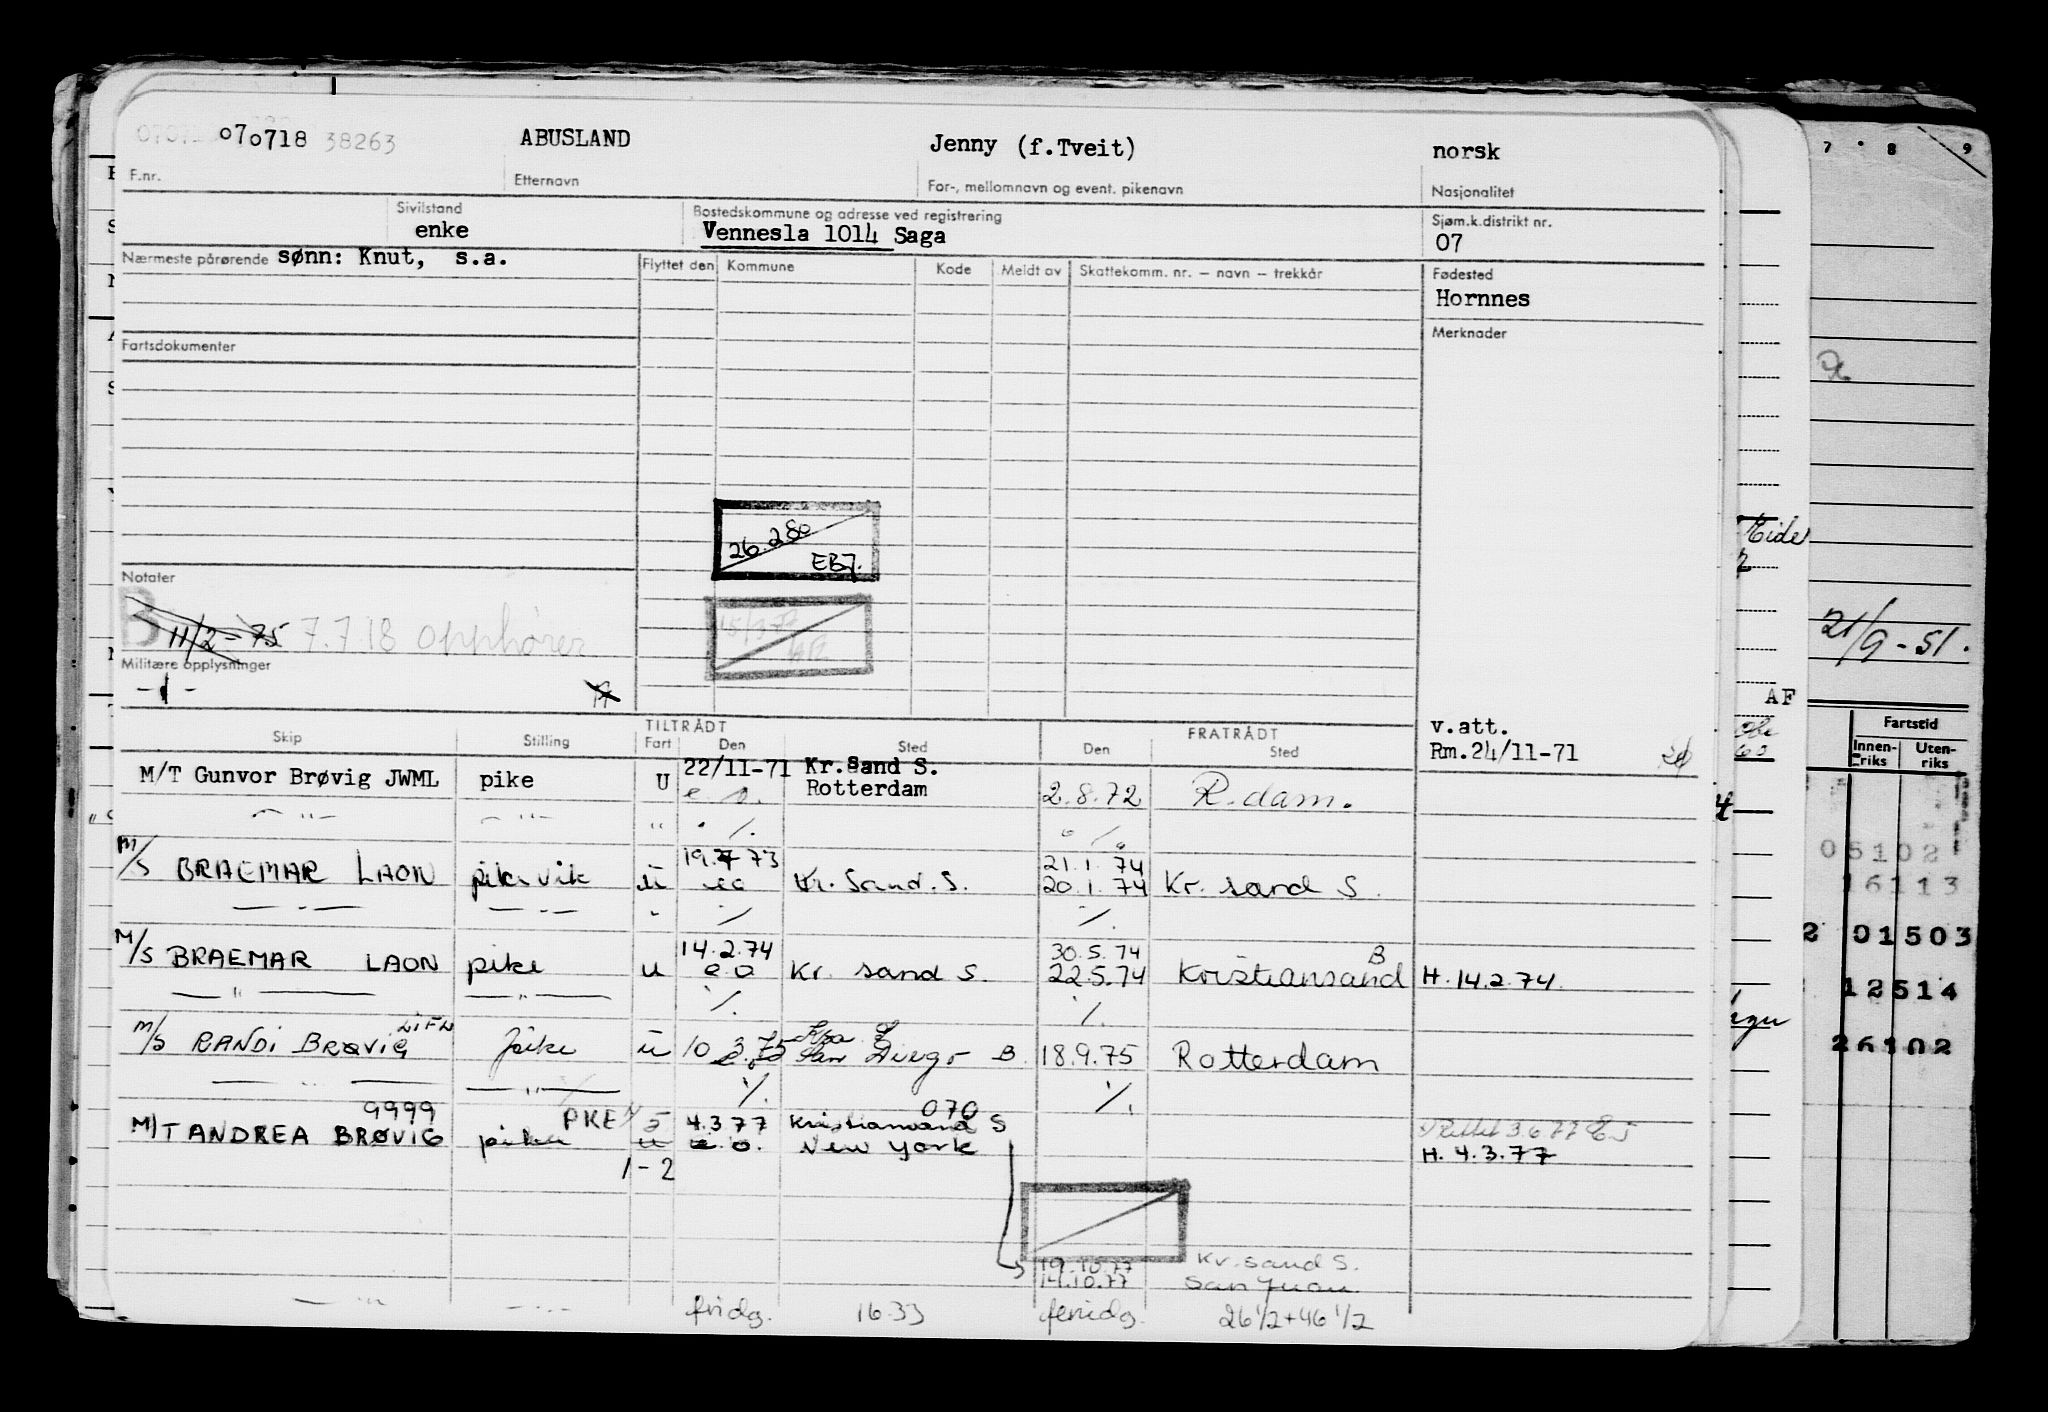 070718 38263 ABUSLAND Jenny (f.Tveit) norsk
F.nr. Etternavn For-, mellomnavn og event. pikenavn Nasjonalitet
Sivilstand Bostedskommune og adresse ved registrering Sjøm.k.distrikt nr.
enke Vennesla 1014 Saga 07
Nærmeste pårørende sønn: Knut, s.a. Flyttet den Kommune Kode Meldt av Skattekomm. nr. – navn – trekkår Fødested
Hornnes
Fartsdokumenter Merknader
26.2.80
EBJ.
Notater
B 11/2-75 7.7.18 opphører
15/3 77
Militære opplysninger
-1-
TILTRÅDT FRATRÅDT v.att.
Skip Stilling Fart Den Sted Den Sted Rm.24/11-71
M/T Gunvor Brøvig JWML pike U 22/11-71 Kr.Sand S.
e.o. Rotterdam 2.8.72 R.dam.
— " — — " — " ·/. ·/.
M/S BRAEMAR LAON pikevik u 19.7 73 21.1.74
eo Kr. Sand. S. 20.1.74 Kr. sand S.
— " — — " — " ·/. ·/.
M/S BRAEMAR LAON pike u 14.2.74 30.5.74 B
e o Kr. sand S. 22.5.74 Kristiansand H. 14.2.74.
— " — — " — ·/. ·/.
M/S RANDI BRØVIG pike u 10.3.75
e.o San Diego B. 18.9.75 Rotterdam
— " — — " — ·/. ·/.
9999 PKE 5 4.3 77 Kristiansand S 070 Rettet 3.6.77
M/T ANDREA BRØVIG pike u e.o. New York H. 4.3.77
1-2
19.10.77 Kr.sand S.
14.10.77 San Juan
— " — — " — fridg. 16.33 feriedg. 26 1/2+46 1/2
7 8 9
Eide
21/9-51.
AF
Fartstid
Innen-
riks
Uten-
riks
05102
16113
2 01503
12514
26102